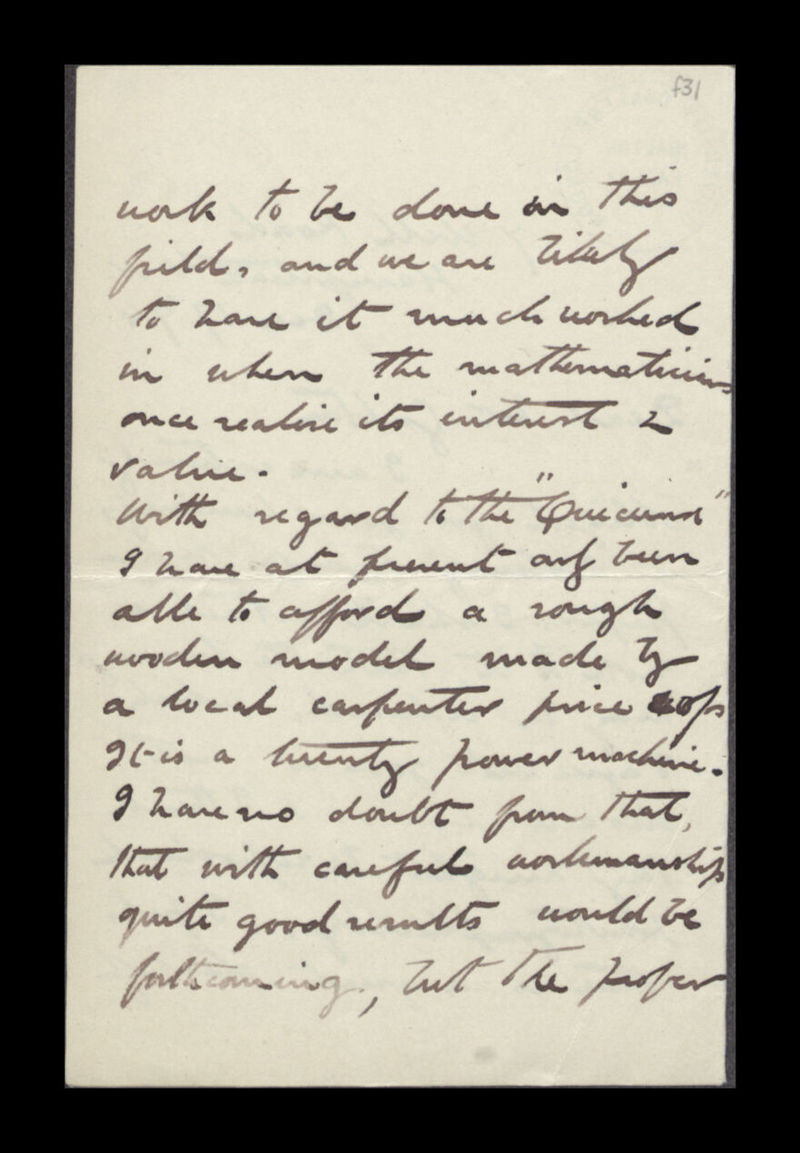 f31
work to be done in this
field, and we are likely
to have it much worked
in when the mathematicians
once realise its interest &
value.
With regard to the "Quicunx"
I have at present only been
able to afford a rough
wooden model made by
a local carpenter price
It is a twenty power machine.
I have no doubt from that,
that with careful workmanship
quite good results would be
forthcoming, but the proper